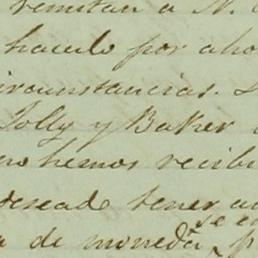 remitan a N.
hacerlo por aho
ircunstancias.
Jolly y Baker
hemos recibi
deseado tener
se en
de moneda p